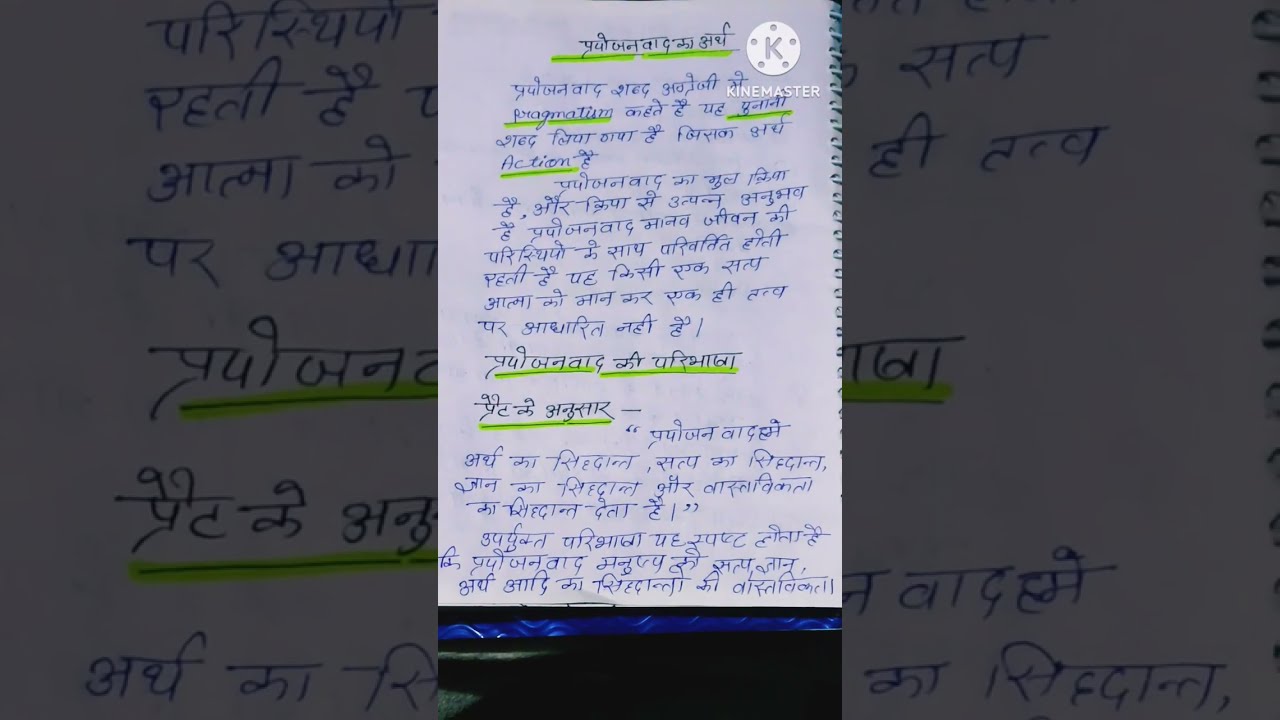 प्रयोजनवाद का अर्थ
KINEMASTER
प्रयोजनवाद शब्द अंग्रेजी मे
Pragmatium कहते है यह युनानी
शब्द लिया गया है जिसक अर्थ
Action है
प्रयोजनवाद का मुल क्रिया
है, और क्रिया से उत्पन्न अनुभव
है प्रयोजनवाद मानव जीवन की
परिस्थियो के साथ परिवर्तित होती
रहती है यह किसी एक सत्य
आत्मा को मान कर एक ही तत्व
पर आधारित नही है।
प्रयोजनवाद की परिभाषा
प्रैट के अनुसार –
“ प्रयोजन वाद हमे
अर्थ का सिद्दान्त, सत्य का सिद्दान्त,
ज्ञान का सिद्दान्त और वास्तविकता
का सिद्दान्त देता है।”
उपर्युक्त परिभाषा यह स्पष्ट होता है
कि प्रयोजनवाद मनुष्य को सत्य, ज्ञान,
अर्थ आदि का सिद्दान्तो की वास्तविकता।